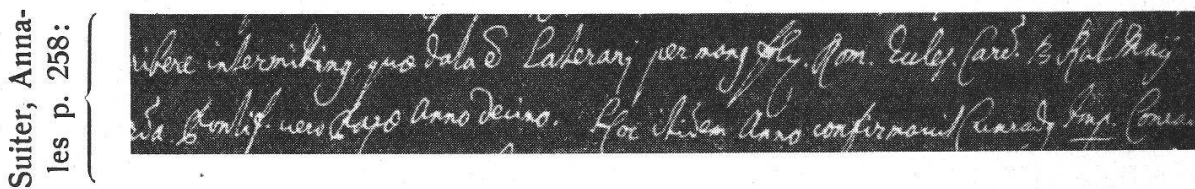 Suiter, Anna-
les p. 258:
ribere intermittimus, quæ data ē Laterani per manus Rom. Eccles. Card. 13 Kal. Maij
Pontif. vero Anno decimo. Hoc itidem Anno confirmavit Cunradus Imp. Conra